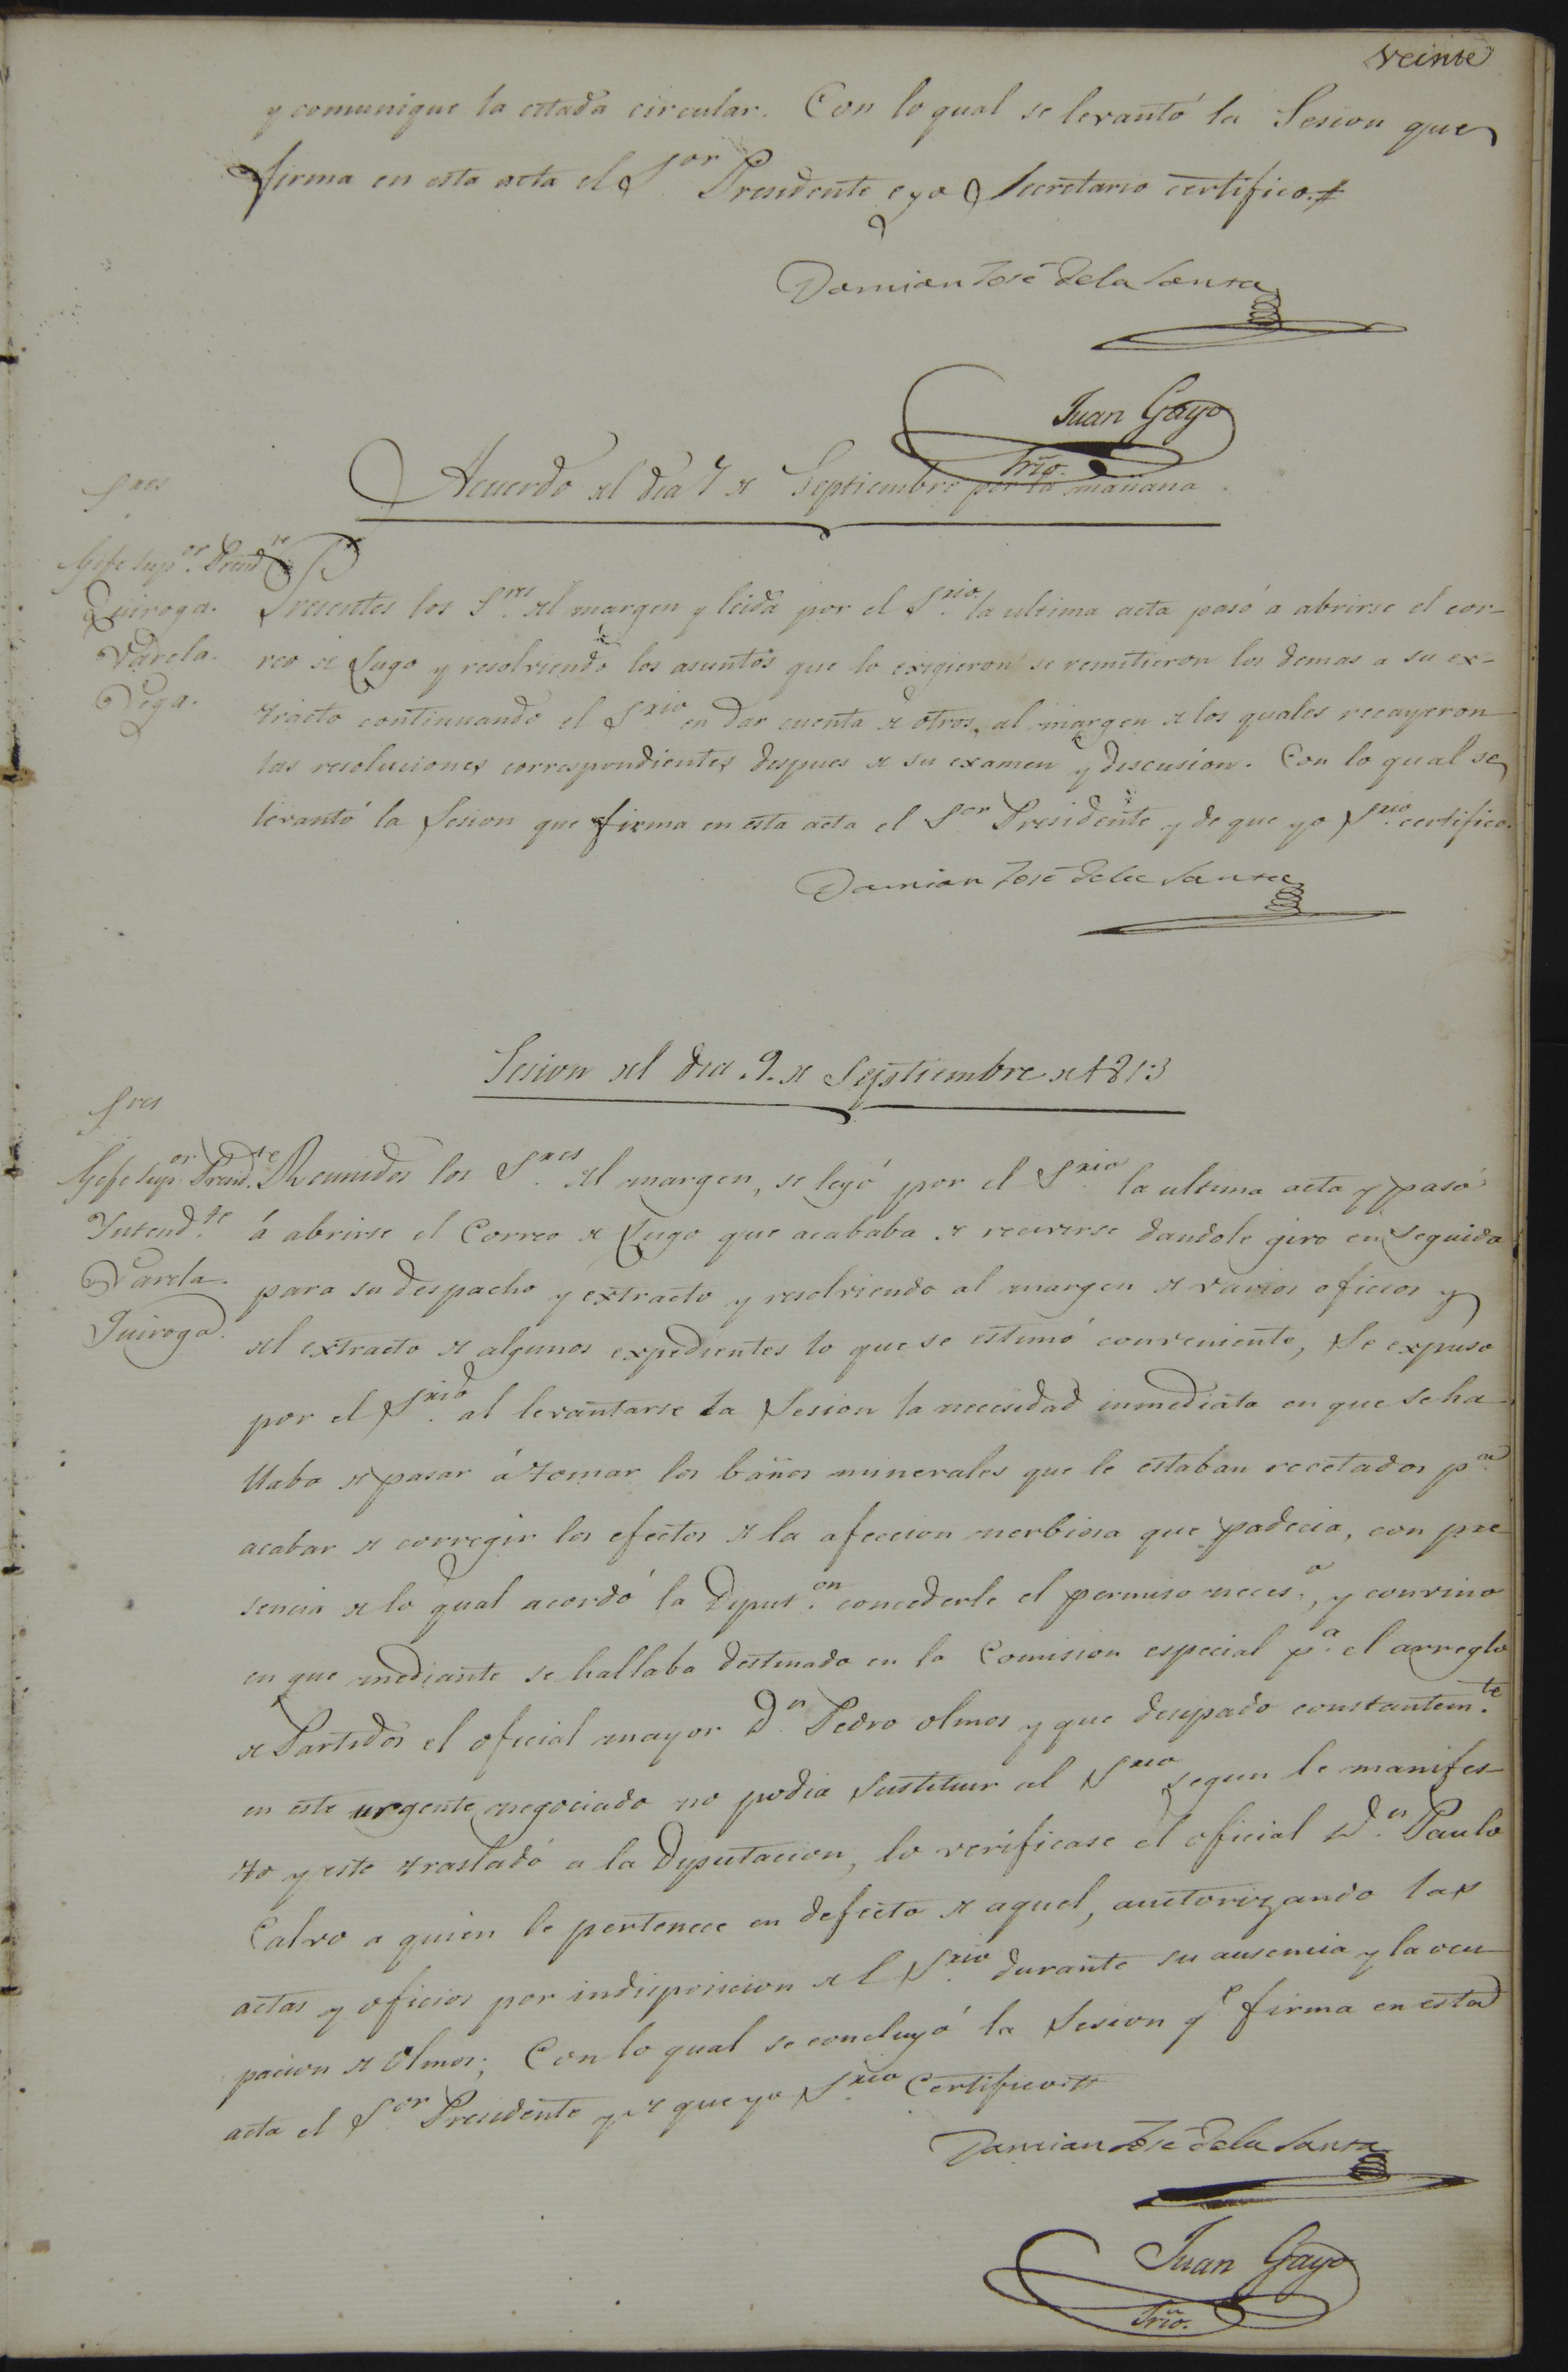 veinte
y comunique la citada circular. Con lo qual se levantó la Sesion que
firma en esta acta el S.or Presidente e yo Secretario certifico.
Damian José de la Santa
Juan Gayo
Srio.
Acuerdo del dia 7 de Septiembre por la mañana
Sres
Gefe Sup.or Presid.te
Quiroga.
Varela.
Vega.
Presentes los S.res del margen y leida por el S.rio la ultima acta pasó a abrirse el cor-
reo de Lugo y resolviendo los asuntos que lo exigieron se remitieron los demas a su ex-
tracto continuando el S.rio en dar cuenta de otros, al margen de los quales recayeron
las resoluciones correspondientes despues de su examen y discusion. Con lo qual se
levantó la Sesion que firma en esta acta el S.or Presidente y de que yo S.rio certifico.
Damian José de la Santa
Sesion del dia .9. de Septiembre de 1813
Sres
Gefe Sup.or Presid.te
Yntend.te
Varela.
Quiroga.
Reunidos los S.res del margen, se leyó por el S.rio la ultima acta y pasó
á abrirse el Correo de Lugo que acababa de recivirse dandole giro en seguida
para su despacho y extracto y resolviendo al margen de varios oficios y
del extracto de algunos expedientes lo que se estimó conveniente, Se expuso
por el S.rio al levantarse la Sesion la necesidad inmediata en que se ha-
llaba de pasar á tomar los baños minerales que le estaban recetados p.a
acabar de corregir los efectos de la afeccion nerbiosa que padecia, con pre-
sencia de lo qual acordó la Diput.on concederle el permiso neces.o, y convino
en que mediante se hallaba destinado en la Comision especial p.a el arreglo
de Partidos el oficial mayor D.n Pedro Olmos y que ocupado constantem.te
en este urgente negociado no podia sustituir al S.rio segun le manifes-
to y este trasladó a la Diputacion, lo verificase el oficial D.n Paulo
Calvo a quien le pertenece en defecto de aquel, auctorizando las
actas y oficios por indisposicion del S.rio durante su ausencia y la ocu-
pacion de Olmos; Con lo qual se concluyó la Sesion q.e firma en esta
acta el S.or Presidente y de que yo S.rio Certifico
Damian José de la Santa
Juan Gayo
Srio.